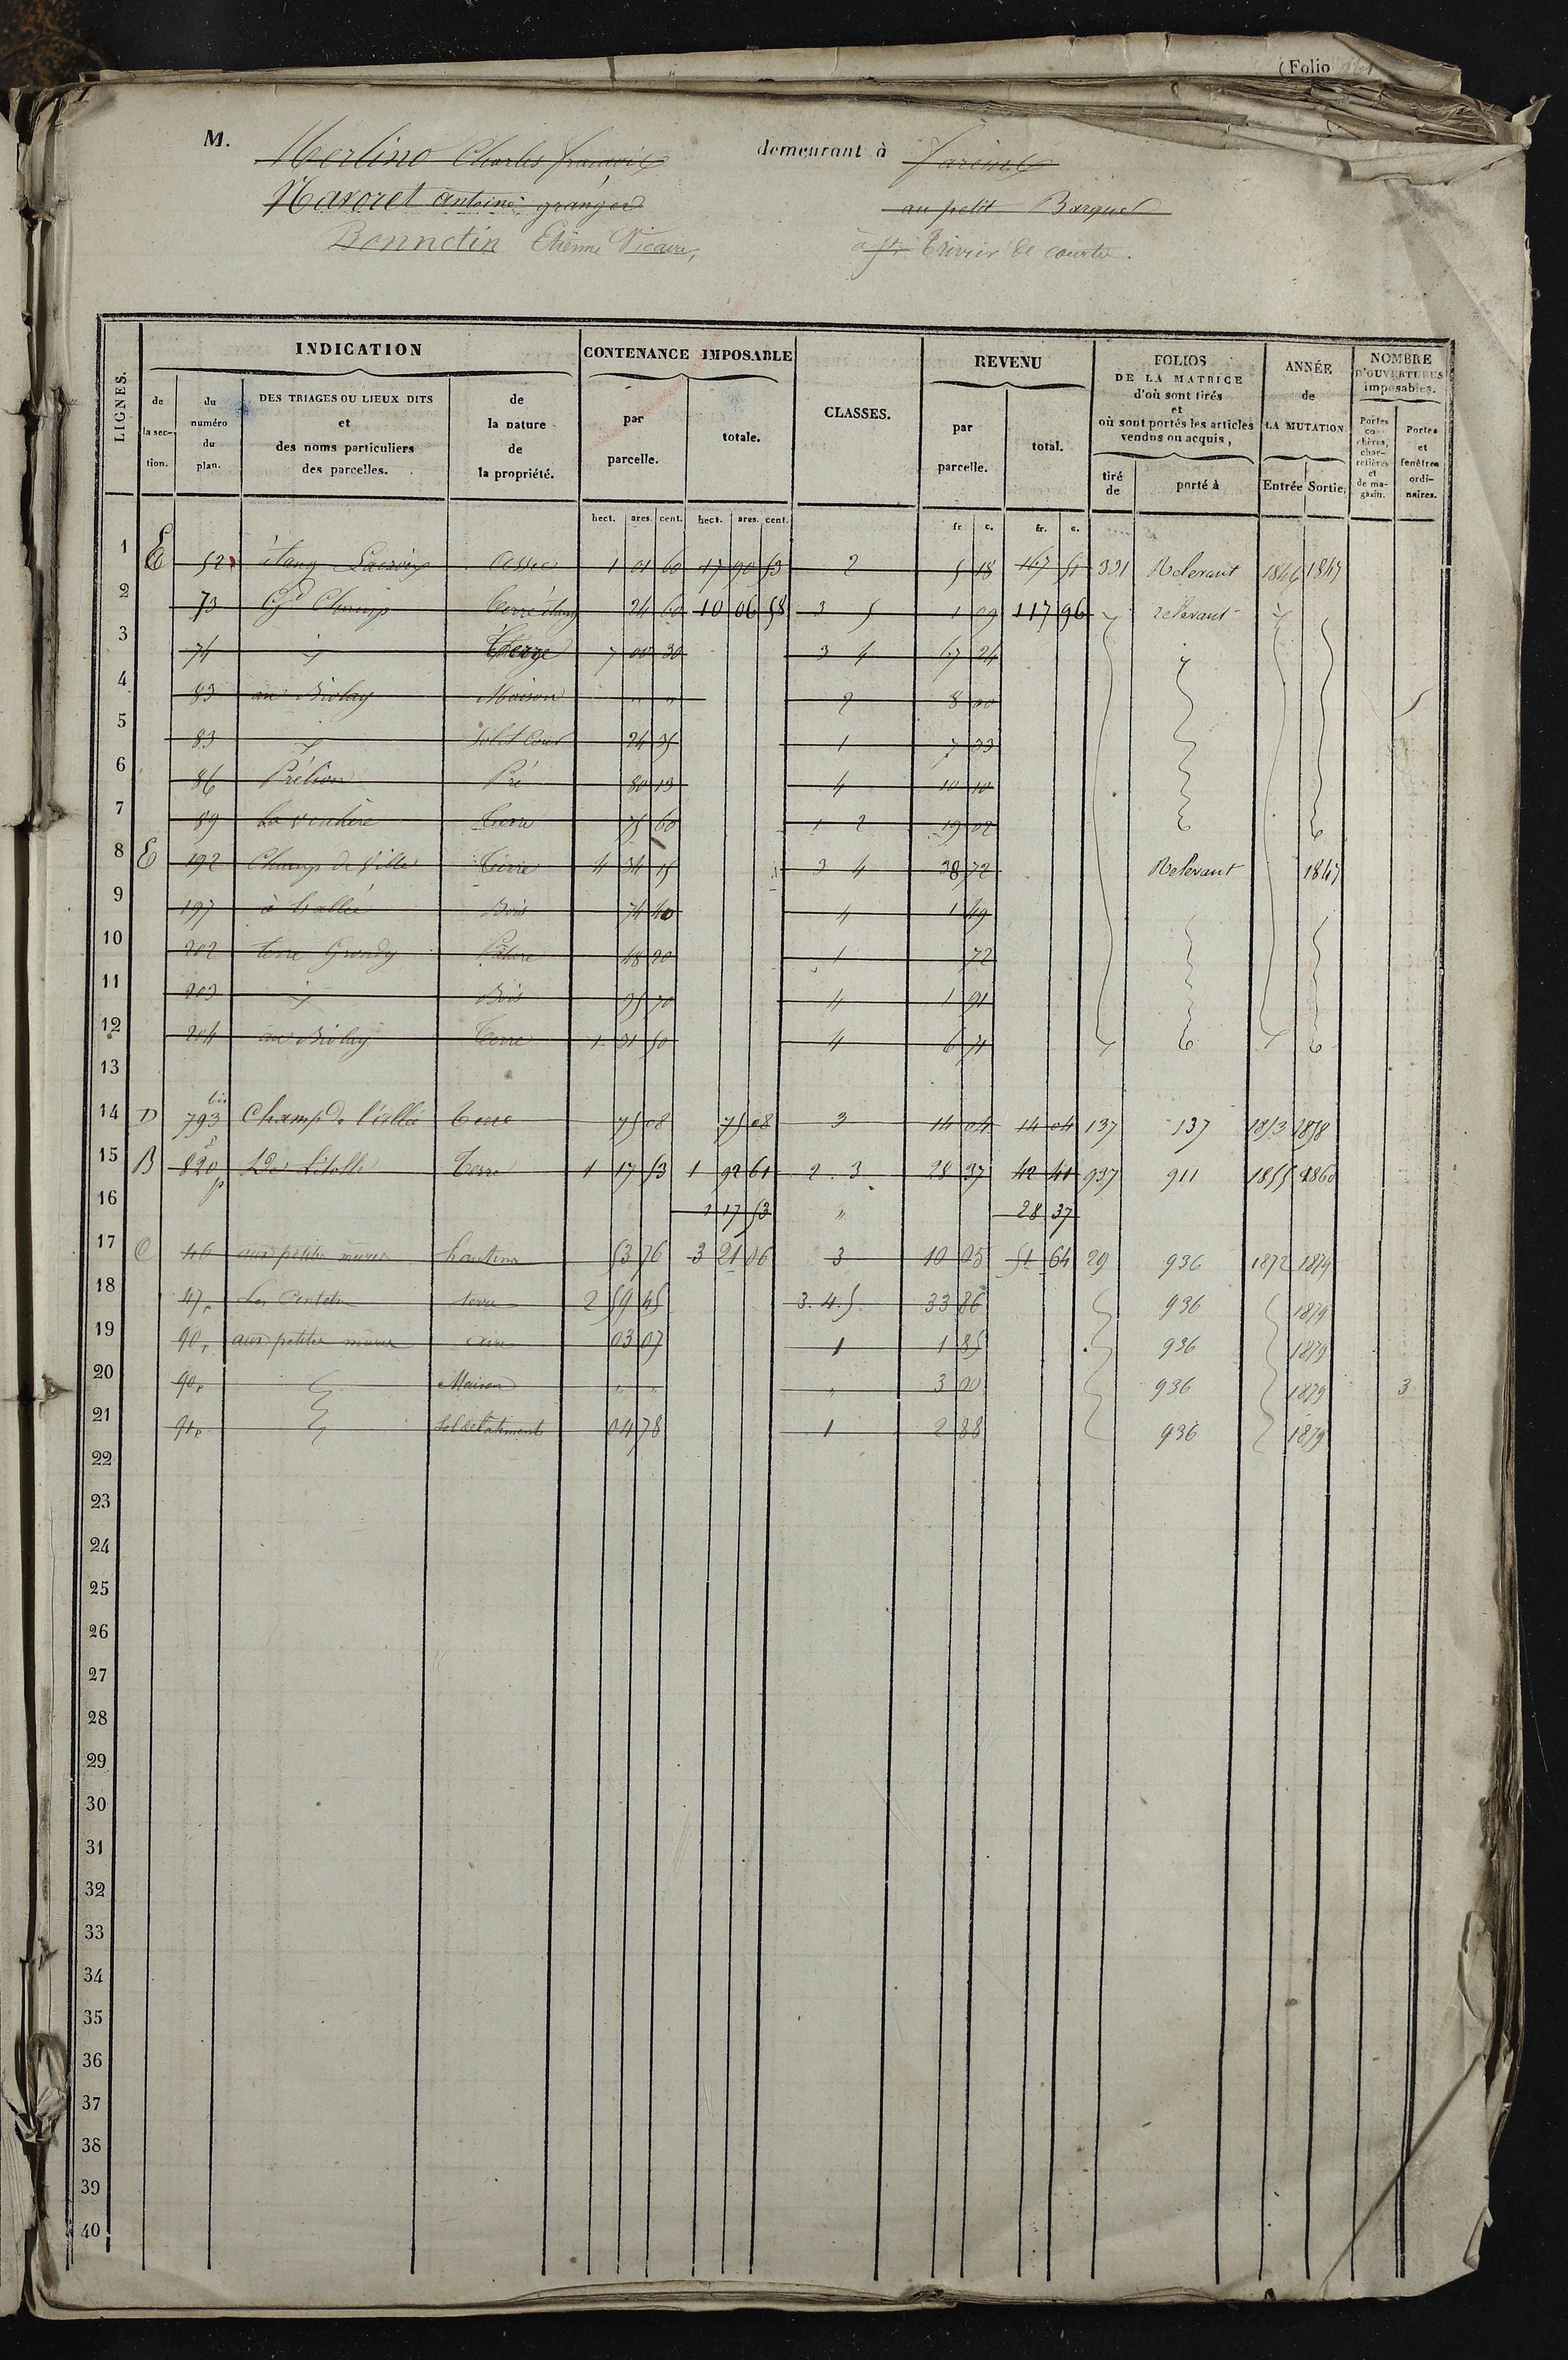 (Folio
M. Merlino Charles françois demeurant à Jareins
Navoret antoine granger au petit Barquet
Bonnetin Etienne Vicaire, à St Trivier de courtes.
LIGNES.
INDICATION
CONTENANCE IMPOSABLE
CLASSES.
REVENU
FOLIOS DE LA MATRICE d'où sont tirés et où sont portés les articles vendus ou acquis,
ANNÉE de LA MUTATION
NOMBRE D'OUVERTURES imposables.
de la section.
du numéro du plan.
DES TRIAGES OU LIEUX DITS et des noms particuliers des parcelles.
de la nature de la propriété.
par parcelle.
totale.
par parcelle.
total.
tiré de
porté à
Entrée
Sortie.
Portes cochères, charretières et de magasin.
Portes et fenêtres ordinaires.
hect. ares. cent. hect. ares. cent. fr. c. fr. c.
1 E 52 étang Lacroix assec 1 01 60 17 90 53 2 5 18 167 51 331 Relevant 1846 1847
2 73 Gd Champ terre étang 24 60 10 06 58 3 5 1 09 117 96 relevant
3 74 Terre 7 00 30 3 4 67 24
4 83 au Biolay Maison " " 2 8 00
5 83 Sol et Cour 24 35 1 7 33
6 86 Prélion Pré 80 13 4 10 10
7 89 La Verchère terre 75 60 1 2 19 02
8 E 192 Champ de Ville terre 4 34 15 3 4 38 72 Relevant 1847
9 197 Bois 74 40 4 1 49
10 202 terre Grondy Pature 48 20 1 72
11 203 Bois 95 70 4 1 91
12 204 au Biolay terre 1 31 50 4 6 71
13
14 D 793 bis Champ de l'allée terre 75 08 75 08 3 14 04 14 04 137 137 1853 1858
15 B 820 p Terre 1 17 53 1 92 61 2. 3 28 37 42 41 937 911 1855 1860
16 1 17 53 " 28 37
17 C 46 aux petites mures hautins 53 76 3 21 06 3 10 05 51 64 29 936 1872 1879
18 47p terre 2 59 45 3. 4. 5 33 86 936 1879
19 90p aux petites mures aire 03 07 1 1 85 936 1879
20 90p Maison " " " 3 00 936 1879 3
21 91p Sol de batiment 04 78 1 2 88 936 1879
22
23
24
25
26
27
28
29
30
31
32
33
34
35
36
37
38
39
40